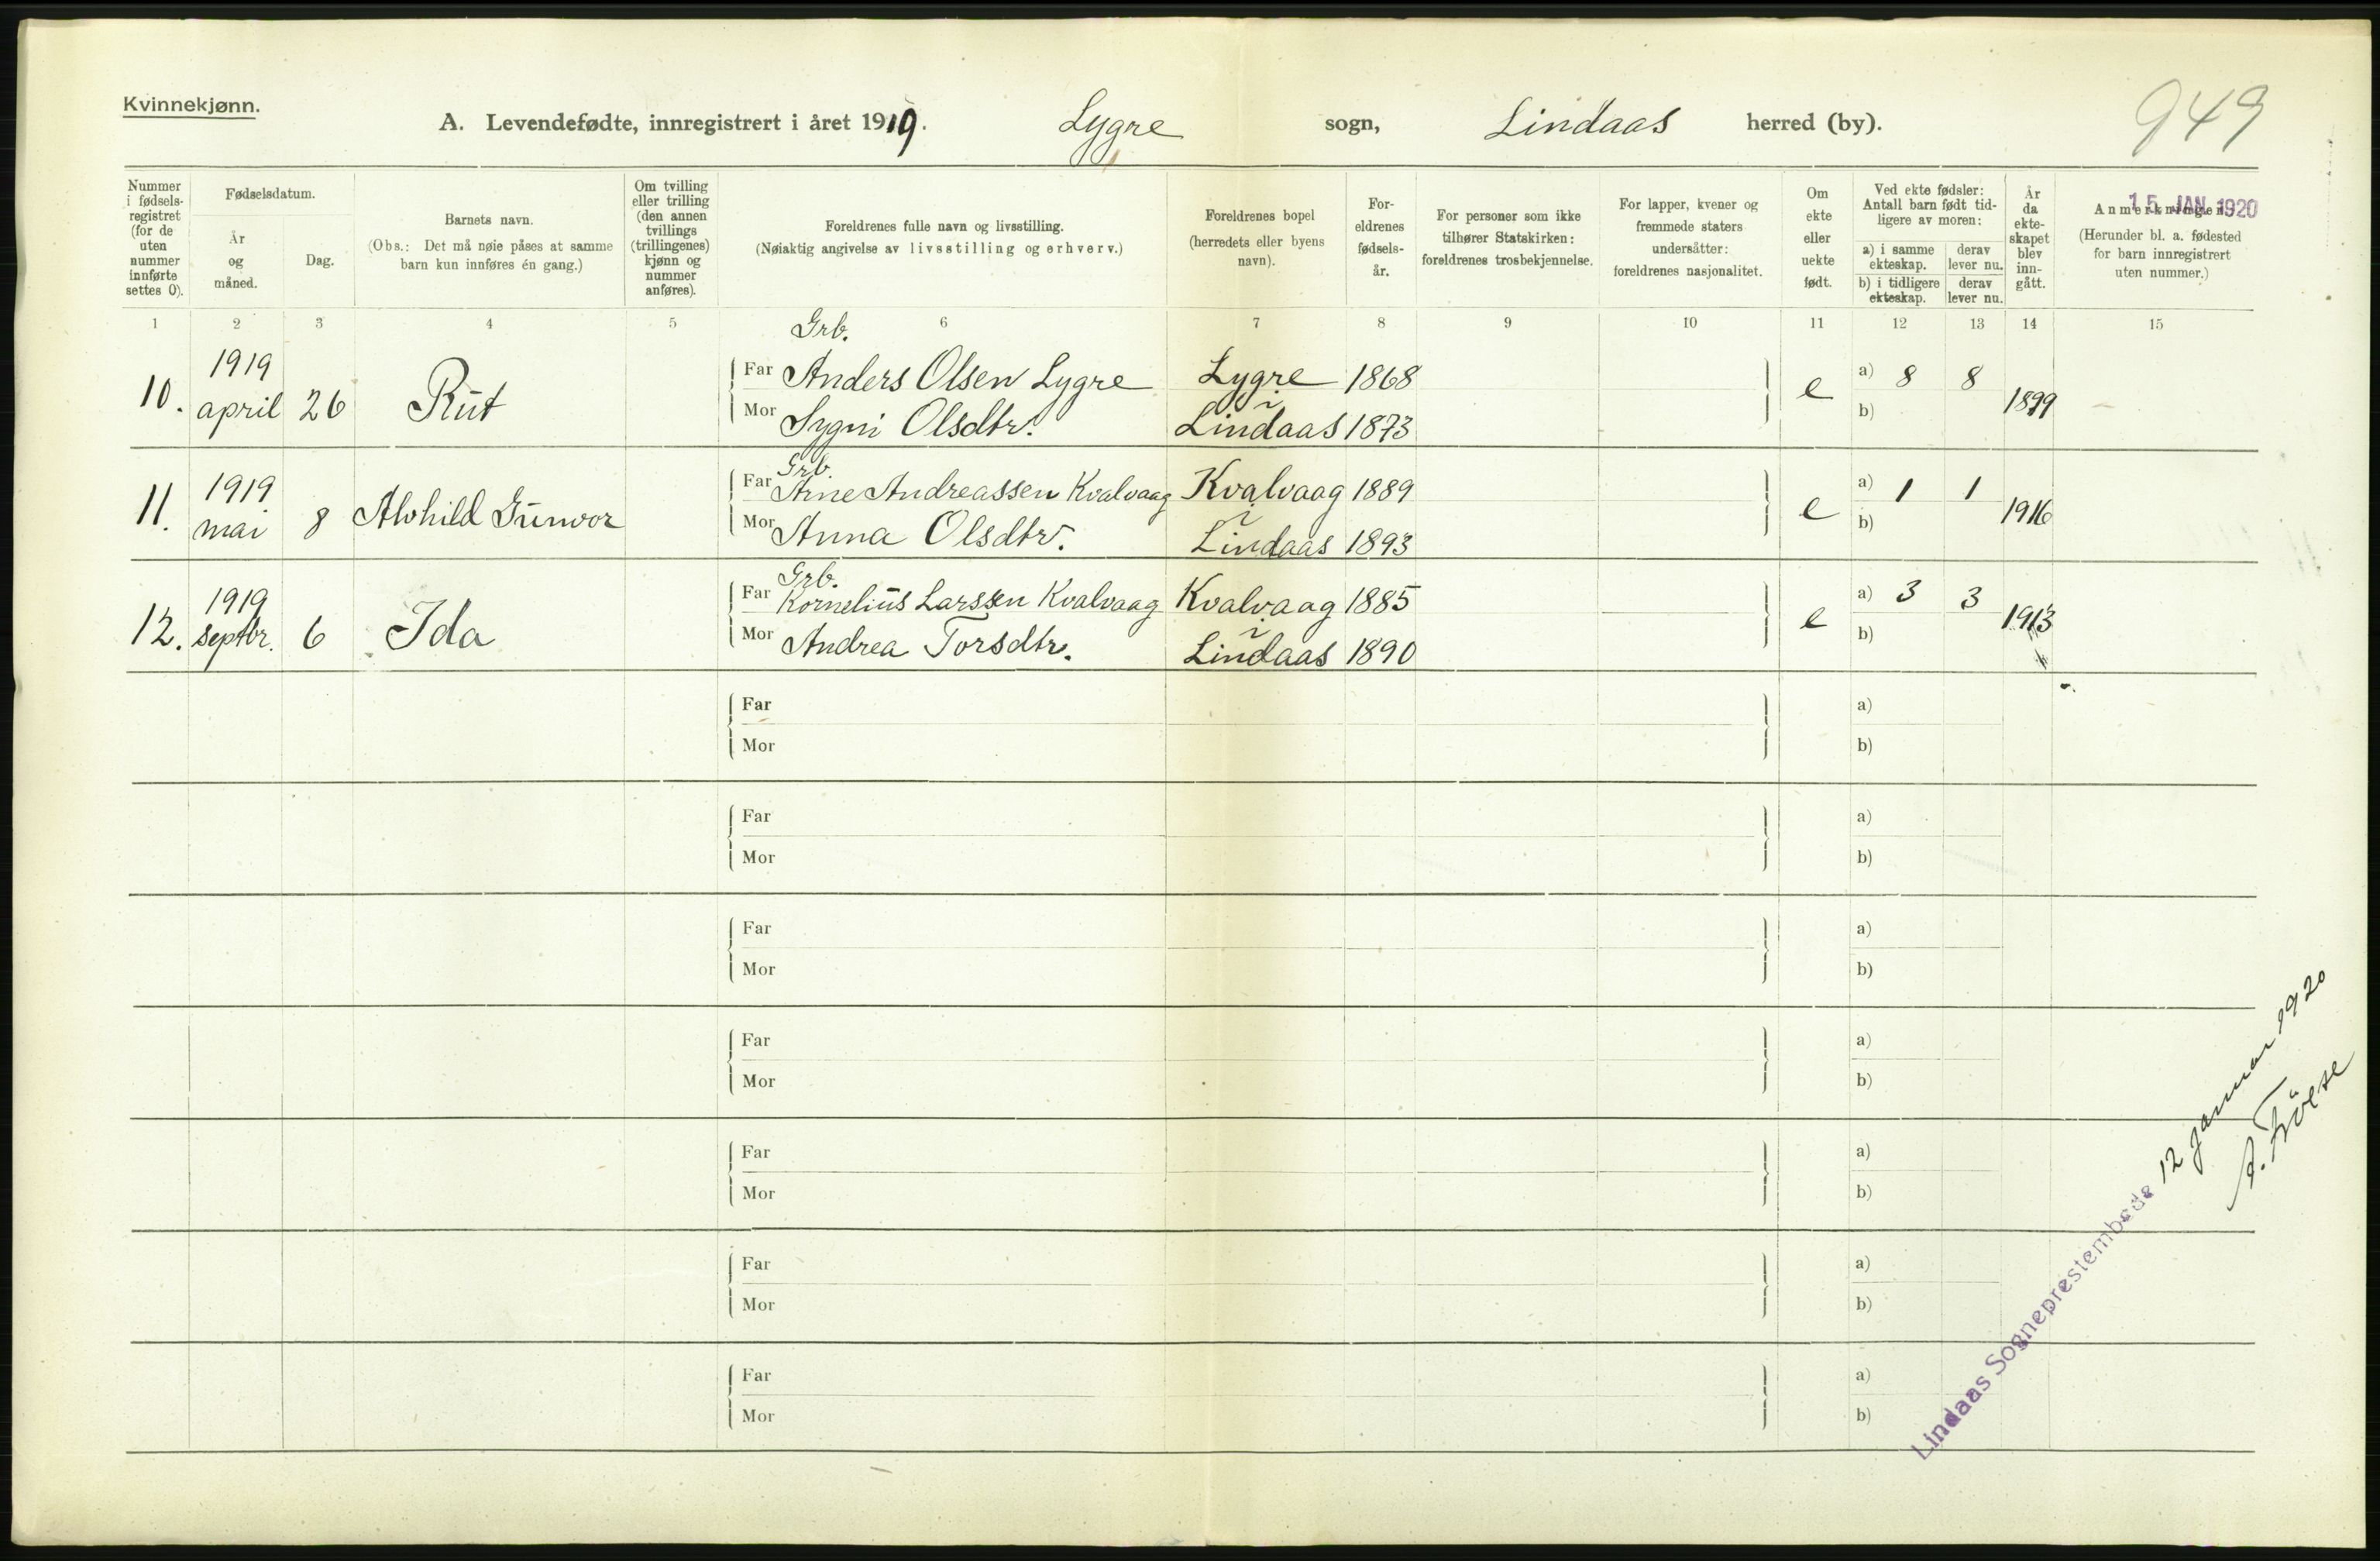 Kvinnekjønn.
A. Levendefødte, innregistrert i året 1919. Lygre sogn, Lindaas herred (by).
949
15 JAN 1920
Nummer i fødsels-registret (for de uten nummer innførte settes 0).
Fødselsdatum.
År og måned.
Dag.
Barnets navn.
(Obs.: Det må nøie påses at samme barn kun innføres én gang.)
Om tvilling eller trilling (den annen tvillings (trillingenes) kjønn og nummer anføres).
Foreldrenes fulle navn og livsstilling.
(Nøiaktig angivelse av livsstilling og erhverv.)
Foreldrenes bopel (herredets eller byens navn).
For-eldrenes fødsels-år.
For personer som ikke tilhører Statskirken: foreldrenes trosbekjennelse.
For lapper, kvener og fremmede staters undersåtter: foreldrenes nasjonalitet.
Om ekte eller uekte født.
Ved ekte fødsler: Antall barn født tid-ligere av moren:
a) i samme ekteskap.
derav lever nu.
b) i tidligere ekteskap.
derav lever nu.
År da ekte-skapet blev inn-gått.
Anmerkninger.
(Herunder bl. a. fødested for barn innregistrert uten nummer.)
1 2 3 4 5 6 7 8 9 10 11 12 13 14 15
Grb.
1919 Far Anders Olsen Lygre Lygre 1868 a) 8 8
10. april 26 Rut e 1899
Mor Sygni Olsdtr. i Lindaas 1873 b)
Grb.
1919 Far Arne Andreassen Kvalvaag Kvalvaag 1889 a) 1 1
11. mai 8 Alvhild Gunvor e 1916
Mor Anna Olsdtr. i Lindaas 1893 b)
Grb.
1919 Far Kornelius Larssen Kvalvaag Kvalvaag 1885 a) 3 3
12. septbr. 6 Ida e 1913
Mor Andrea Torsdtr. i Lindaas 1890 b)
Far a)
Mor b)
Far a)
Mor b)
Far a)
Mor b)
Far a)
Mor b)
Far a)
Mor b)
Far a)
Mor b)
Far a)
Mor b)
Lindaas Sogneprestembede 12 januar 1920